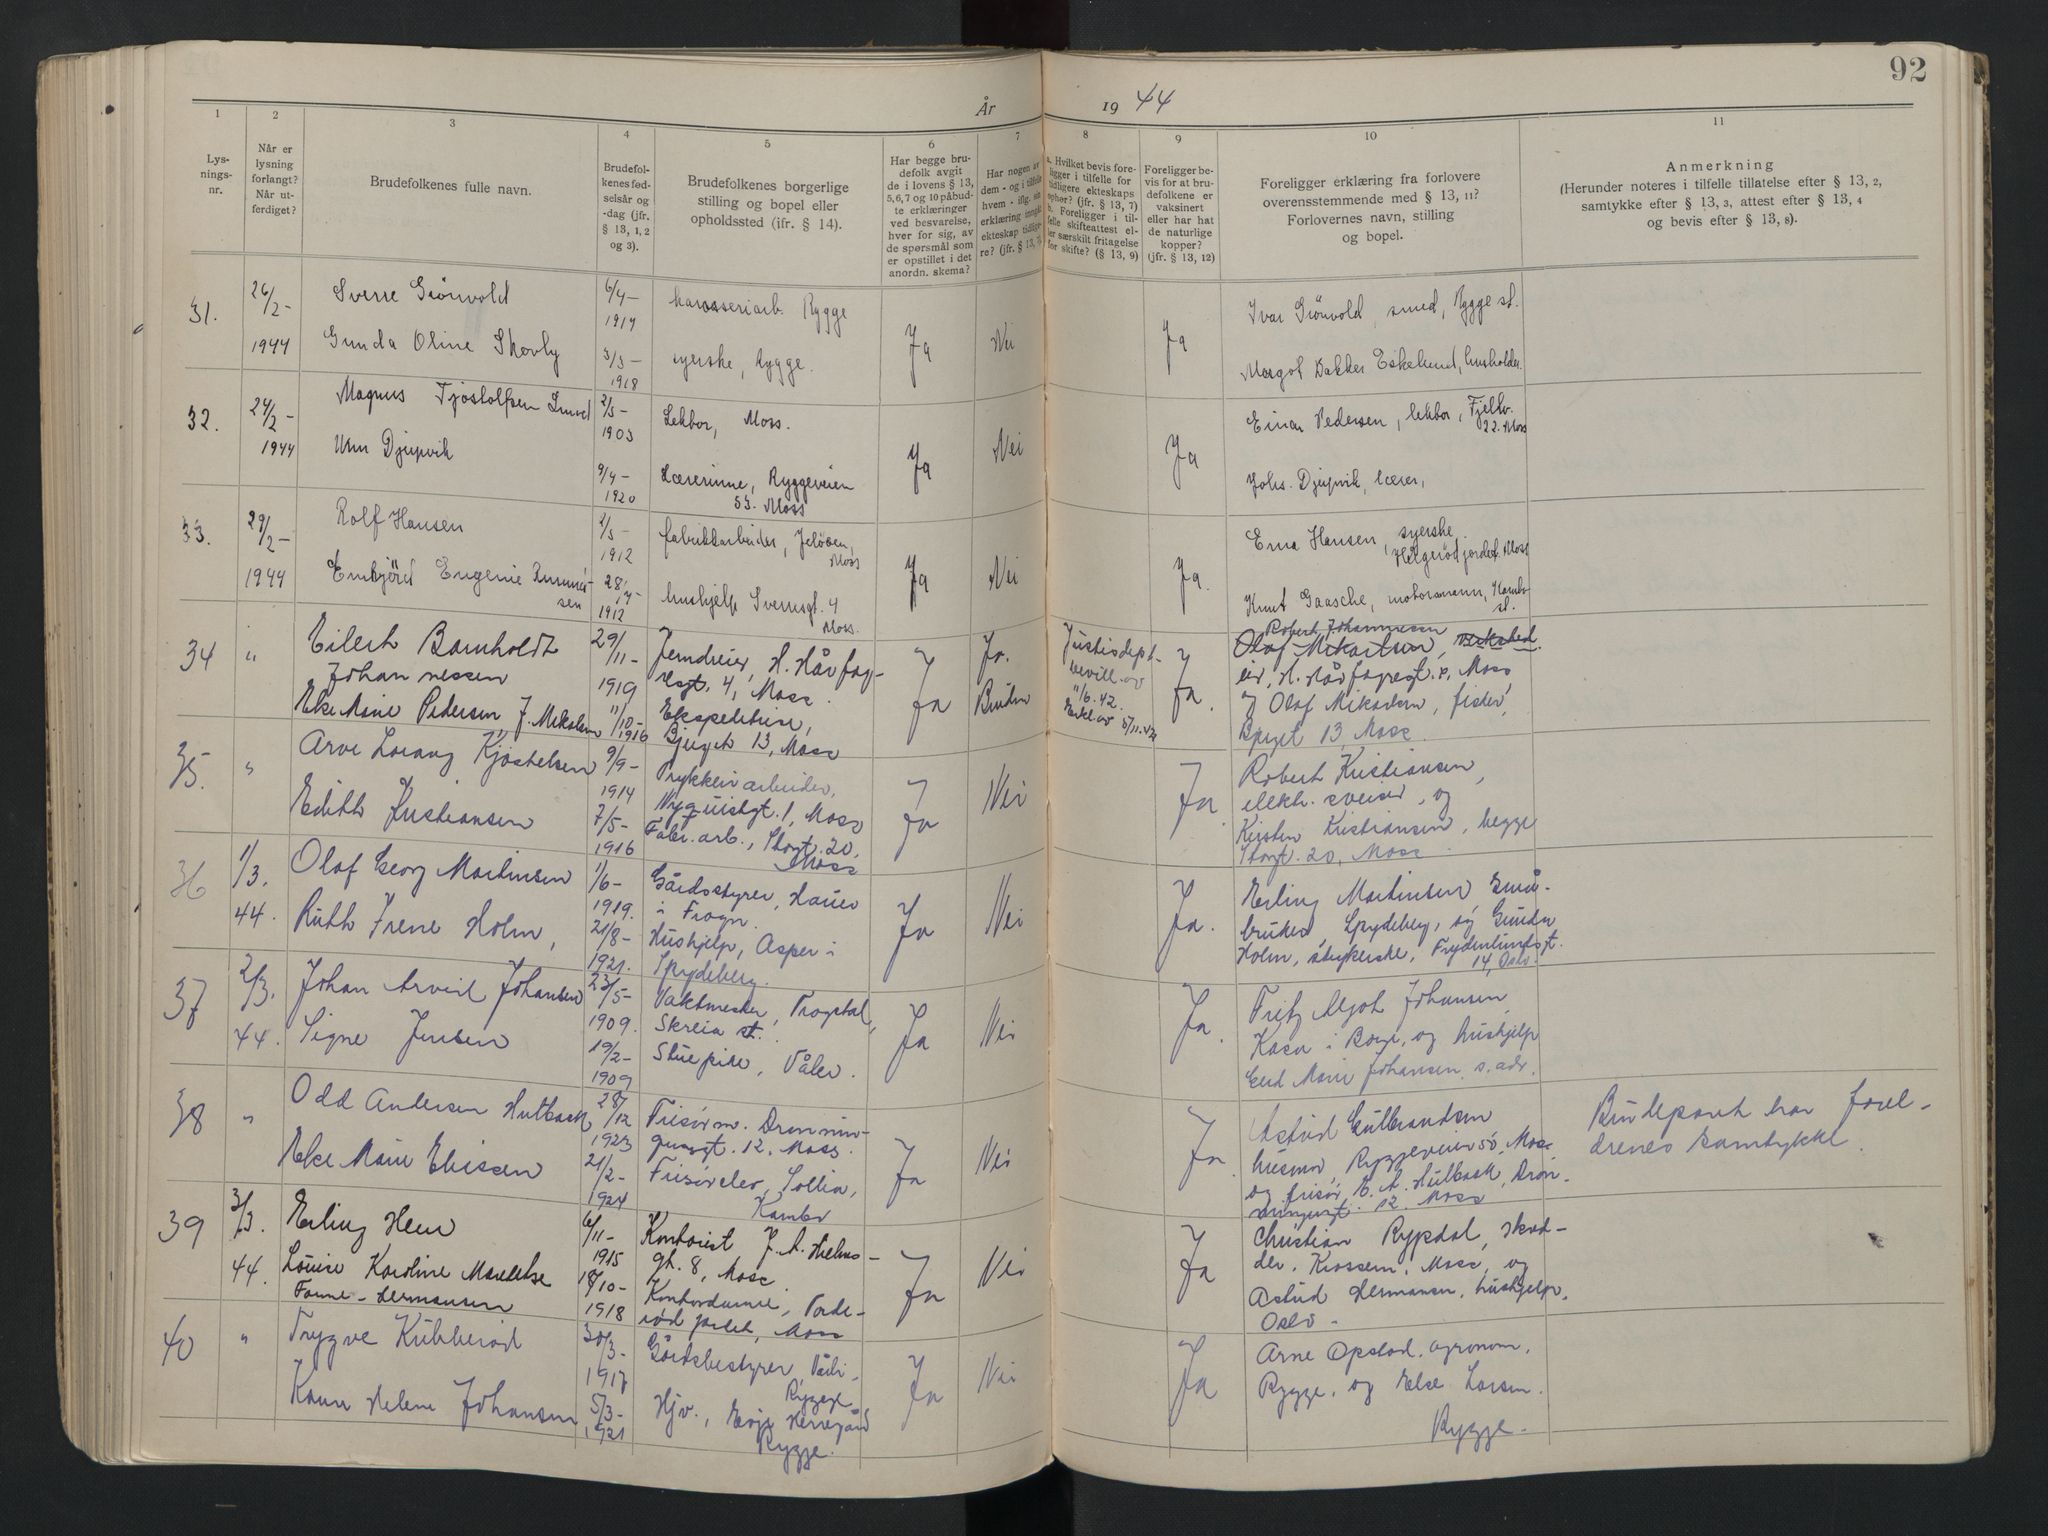 92
År 1944
1
2
3
4
5
6
7
8
9
10
11
Lys-
nings-
nr.
Når er
lysning
forlangt?
Når ut-
ferdiget?
Brudefolkenes fulle navn.
Brudefol-
kenes fød-
selsår og
-dag (jfr.
§ 13, 1, 2
og 3).
Brudefolkenes borgerlige
stilling og bopel eller
opholdssted (ifr. § 14).
Har begge bru-
defolk avgit
de i lovens § 13,
5, 6, 7 og 10 påbud-
te erklæringer
ved besvarelse,
hver for sig, av
de spørsmål som
er opstillet i det
anordn. skema?
Har nogen av
dem - og i tilfelle
hvem - iflg. sin
erklæring inngått
ekteskap tidlige-
re? (jfr. § 13, 7).
a. Hvilket bevis fore-
ligger i tilfelle for
tidligere ekteskaps
ophør? (jfr. § 13, 7)
b. Foreligger i til-
felle skifteattest el-
ler særskilt fritagelse
for skifte? (§ 13, 9)
Foreligger be-
vis for at bru-
defolkene er
vaksinert
eller har hat
de naturlige
kopper?
(jfr. § 13, 12)
Foreligger erklæring fra forlovere
overensstemmende med § 13, 11?
Forlovernes navn, stilling
og bopel.
Anmerkning
(Herunder noteres i tilfelle tillatelse efter § 13, 2,
samtykke efter § 13, 3, attest efter § 13, 4
og bevis efter § 13, 8).
31. 26/2- 1944
Sverre Grönvold 6/4- 1914 karosseriarb. Rygge
Gunda Oline Skovly 3/3- 1918 syerske, Rygge.
Ja Nei Ja
Ivar Grönvold, smed, Rygge st.
Margot Bakker Eskelund, husholder.
32. 24/2- 1944
Magnus Tjostolfsen 2/5- 1903 Lektor, Moss.
Unn Djupvik 9/4- 1920 Lærerinne, Ryggeveien
53. Moss
Ja Nei Ja
Einar Pedersen, lektor, Fjellv.
22. Moss
Johs. Djupvik, lærer,
33. 29/2- 1944
Rolf Hansen 2/5- 1912 fabrikkarbeider, Jelöen,
Moss
Embjörd Eugenie 28/4- 1912 hushjelp Sverresgt. 4
Moss.
Ja Nei Ja.
Erna Hansen, syerske
Helgerödjordet. Moss
Knut Gaasche, motormann, Kambo
st.
34 "
Eilert Bamholdt 29/11- 1919 Jerndreier, H. Hårfag-
Johannessen resgt. 4, Moss.
Else Marie Pedersen f. Mikalsen 11/10- 1916 Ekspeditrise,
Bjerget 13, Moss
Ja Ja. Bruden
Justisdept.
bevill. av
11/6. 42.
Erkl. av
Ja.
Robert Johannessen
Olaf Mikalsen, verksted
eier, H. Hårfagresgt. 4, Moss
og Olaf Mikalsen, fisker,
Bjerget 13, Moss.
35. "
Arve Lorang Kjöstelsen 9/9- 1914 Trykkeriarbeider,
Nyquistgt. 1, Moss
Edith Kristiansen 7/5- 1916 Fabr. arb., Storgt. 20,
Moss
Ja Nei Ja.
Robert Kristiansen,
elektr. sveiser, og
Kirsten Kristiansen, begge
Storgt. 20, Moss.
36 1/3. 44.
Olaf Georg Martinsen 1/6- 1919. Gårdsstyrer, Hauer
i Frogn.
Ruth Irene Holm, 21/8- 1921. Hushjelp, Asper i
Spydeberg.
Ja Nei Ja.
Erling Martinsen, Små-
bruker, Spydeberg, og Gunda
Holm, strykerske, Frydenlundsgt.
14, Oslo.
37 2/3. 44.
Johan Arvid Johansen 23/5- 1909. Vaktmester, Trogstad,
Skreia st.
Signe Jensen 19/2- 1909 Stuepike, Våler.
Ja Nei Ja.
Fritz Johansen,
i Borge, og hushjelp
Gerd Marie Johansen, s. adr.
38 "
Odd Andersen Hutback 28/12 1923 Frisörm. Dronnin-
gensgt. 12, Moss.
Else Marie Eliassen 21/2- 1924 Frisörelev, Sollia,
Kambo
Ja Nei Ja.
Astrid Gulbrandsen
husmor, Ryggeveien 50, Moss
og frisör E. A. Hutback, Dron-
ningensgt. 12. Moss
Brudeparet har forel-
drenes samtykke.
39 3/3. 44.
Erling Hem 6/11- 1915 Kontorist J. A. Hielms-
gt. 8, Moss
Louise Karoline Marelise 18/10- 1918 Kontordame, Torde-
Fanne-Hermansen röd jordet, Moss
Ja Nei Ja
Christian Rypdal, skred-
der, Krossern, Moss, og
Astrid Hermansen, hushjelp,
Oslo -
40 "
Trygve Kubberöd 30/3- 1917 Gårdsbestyrer,
Rygge
Karin Helene Johansen 5/3- 1921 Hjv., Evje Herregård
Rygge.
Ja Nei Ja
Arne Opstad, agronom,
Rygge, og Else Larsen.
Rygge.